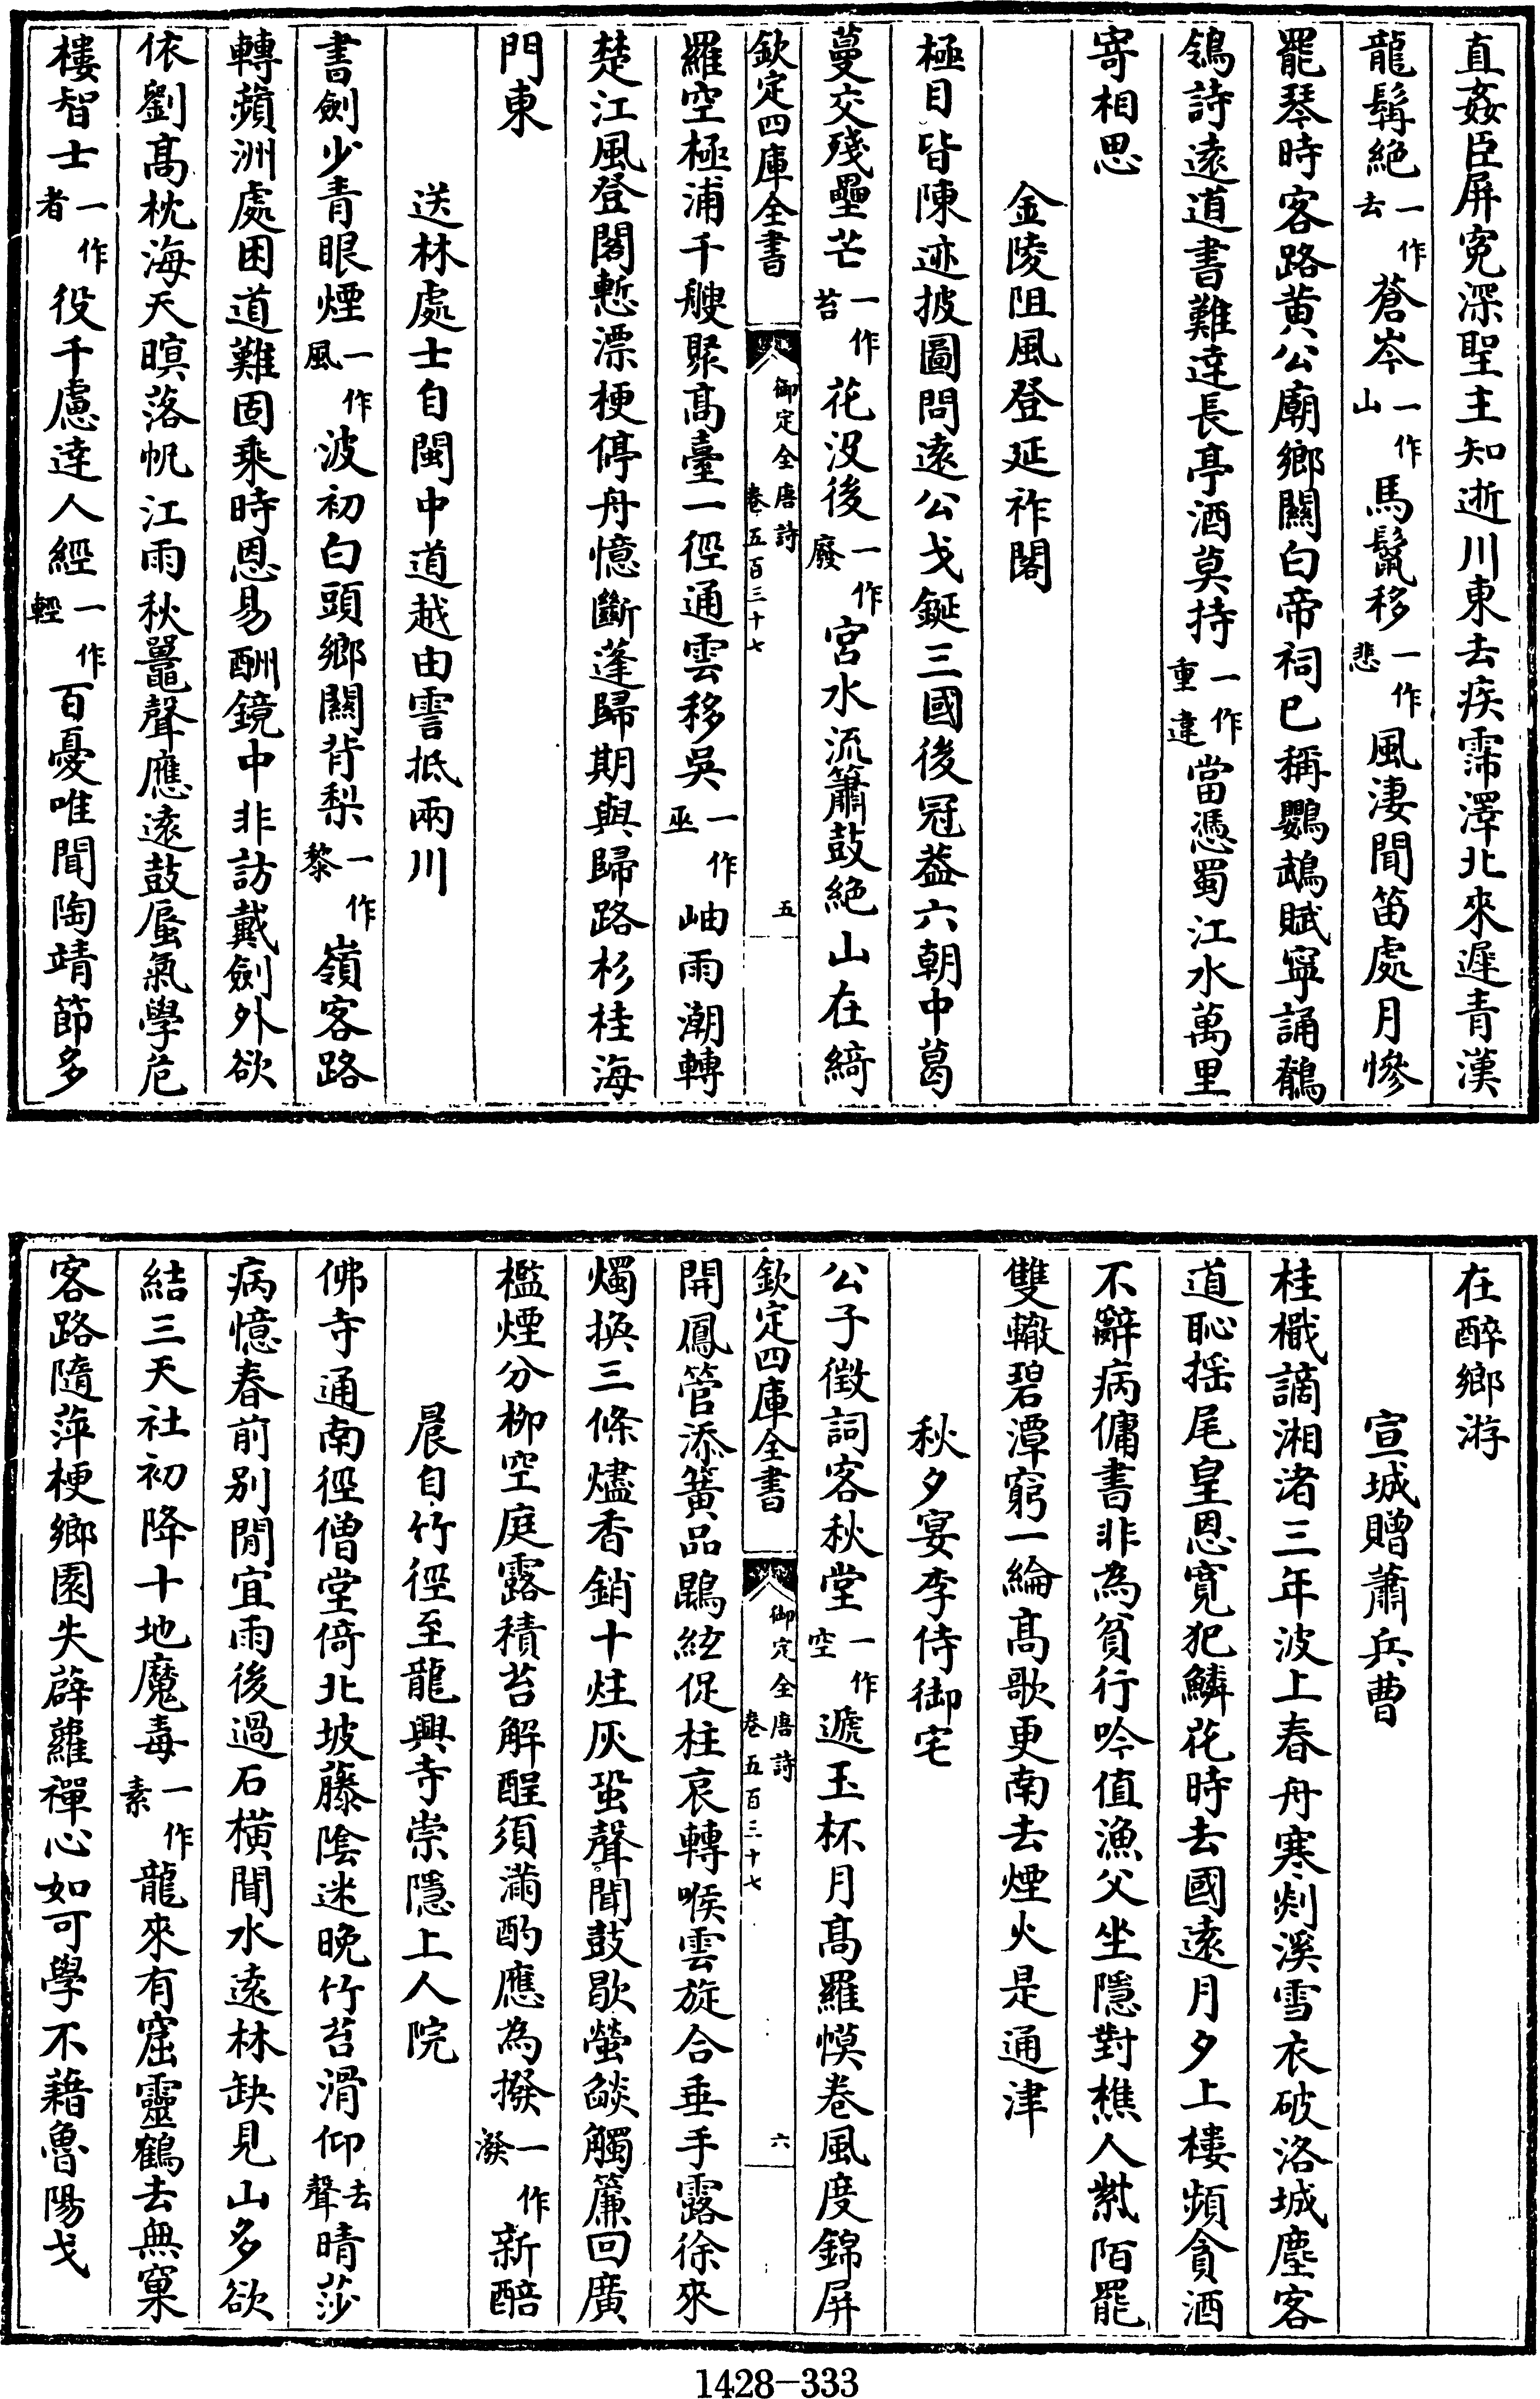 直姦臣屏寃深聖主知逝川東去疾霈澤北來遲青漢
龍髯絶一作去蒼岑一作山馬鬛移一作悲風淒聞笛處月慘
罷琴時客路黄公廟鄉關白帝祠已稱鸚鵡賦寧誦鶺
鴒詩遠道書難達長亭酒莫持一作重違當憑蜀江水萬里
寄相思
金陵阻風登延祚閣
極目皆陳迹披圖問遠公戈鋋三國後冠葢六朝中葛
蔓交殘壘芒一作苔花没後一作廢宮水流簫鼓絶山在綺
欽定四庫全書 御定全唐詩 卷五百三十七 五
羅空極浦千艘聚高臺一徑通雲移吳一作巫岫雨潮轉
楚江風登閣慙漂梗停舟憶斷蓬歸期與歸路杉桂海
門東
送林處士自閩中道越由霅抵兩川
書劍少青眼煙一作風波初白頭鄉關背梨一作黎嶺客路
轉蘋洲處困道難固乘時恩易酬鏡中非訪戴劍外欲
依劉高枕海天暝落帆江雨秋鼉聲應遠鼓蜃氣學危
樓智士一作者役千慮達人經一作輕百憂唯聞陶靖節多
在醉鄉游
宣城贈蕭兵曹
桂檝謫湘渚三年波上春舟寒剡溪雪衣破洛城塵客
道恥揺尾皇恩寛犯鱗花時去國遠月夕上樓頻貪酒
不辭病傭書非為貧行吟值漁父坐隱對樵人紫陌罷
雙轍碧潭窮一綸高歌更南去煙火是通津
秋夕宴李侍御宅
公子徵詞客秋堂一作空遞玉杯月高羅幙卷風度錦屏
欽定四庫全書 御定全唐詩 卷五百三十七 六
開鳳管添簧品鵾絃促柱哀轉喉雲旋合垂手露徐來
燭換三條燼香銷十炷灰蛩聲聞鼓歇螢燄觸簾回廣
檻煙分柳空庭露積苔解酲須滿酌應為撥一作潑新醅
晨自竹徑至龍興寺崇隱上人院
佛寺通南徑僧堂倚北坡藤陰迷晚竹苔滑仰去聲晴莎
病憶春前别閒宜雨後過石橫聞水遠林缺見山多欲
結三天社初降十地魔毒一作素龍來有窟靈鶴去無窠
客路隨萍梗鄉園失薜蘿禪心如可學不藉魯陽戈
1428-333